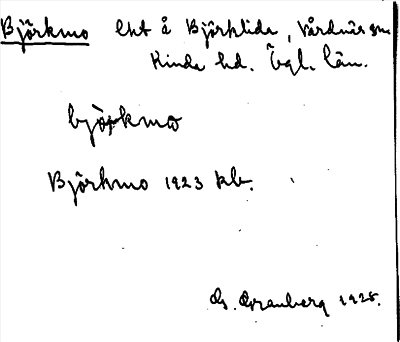 Björkmo lht å Björklida, Vårdnäs sn
Kinda hd. Ögl. län.
björkmo
Björkmo 1923 kb.
G. Granberg 1928.